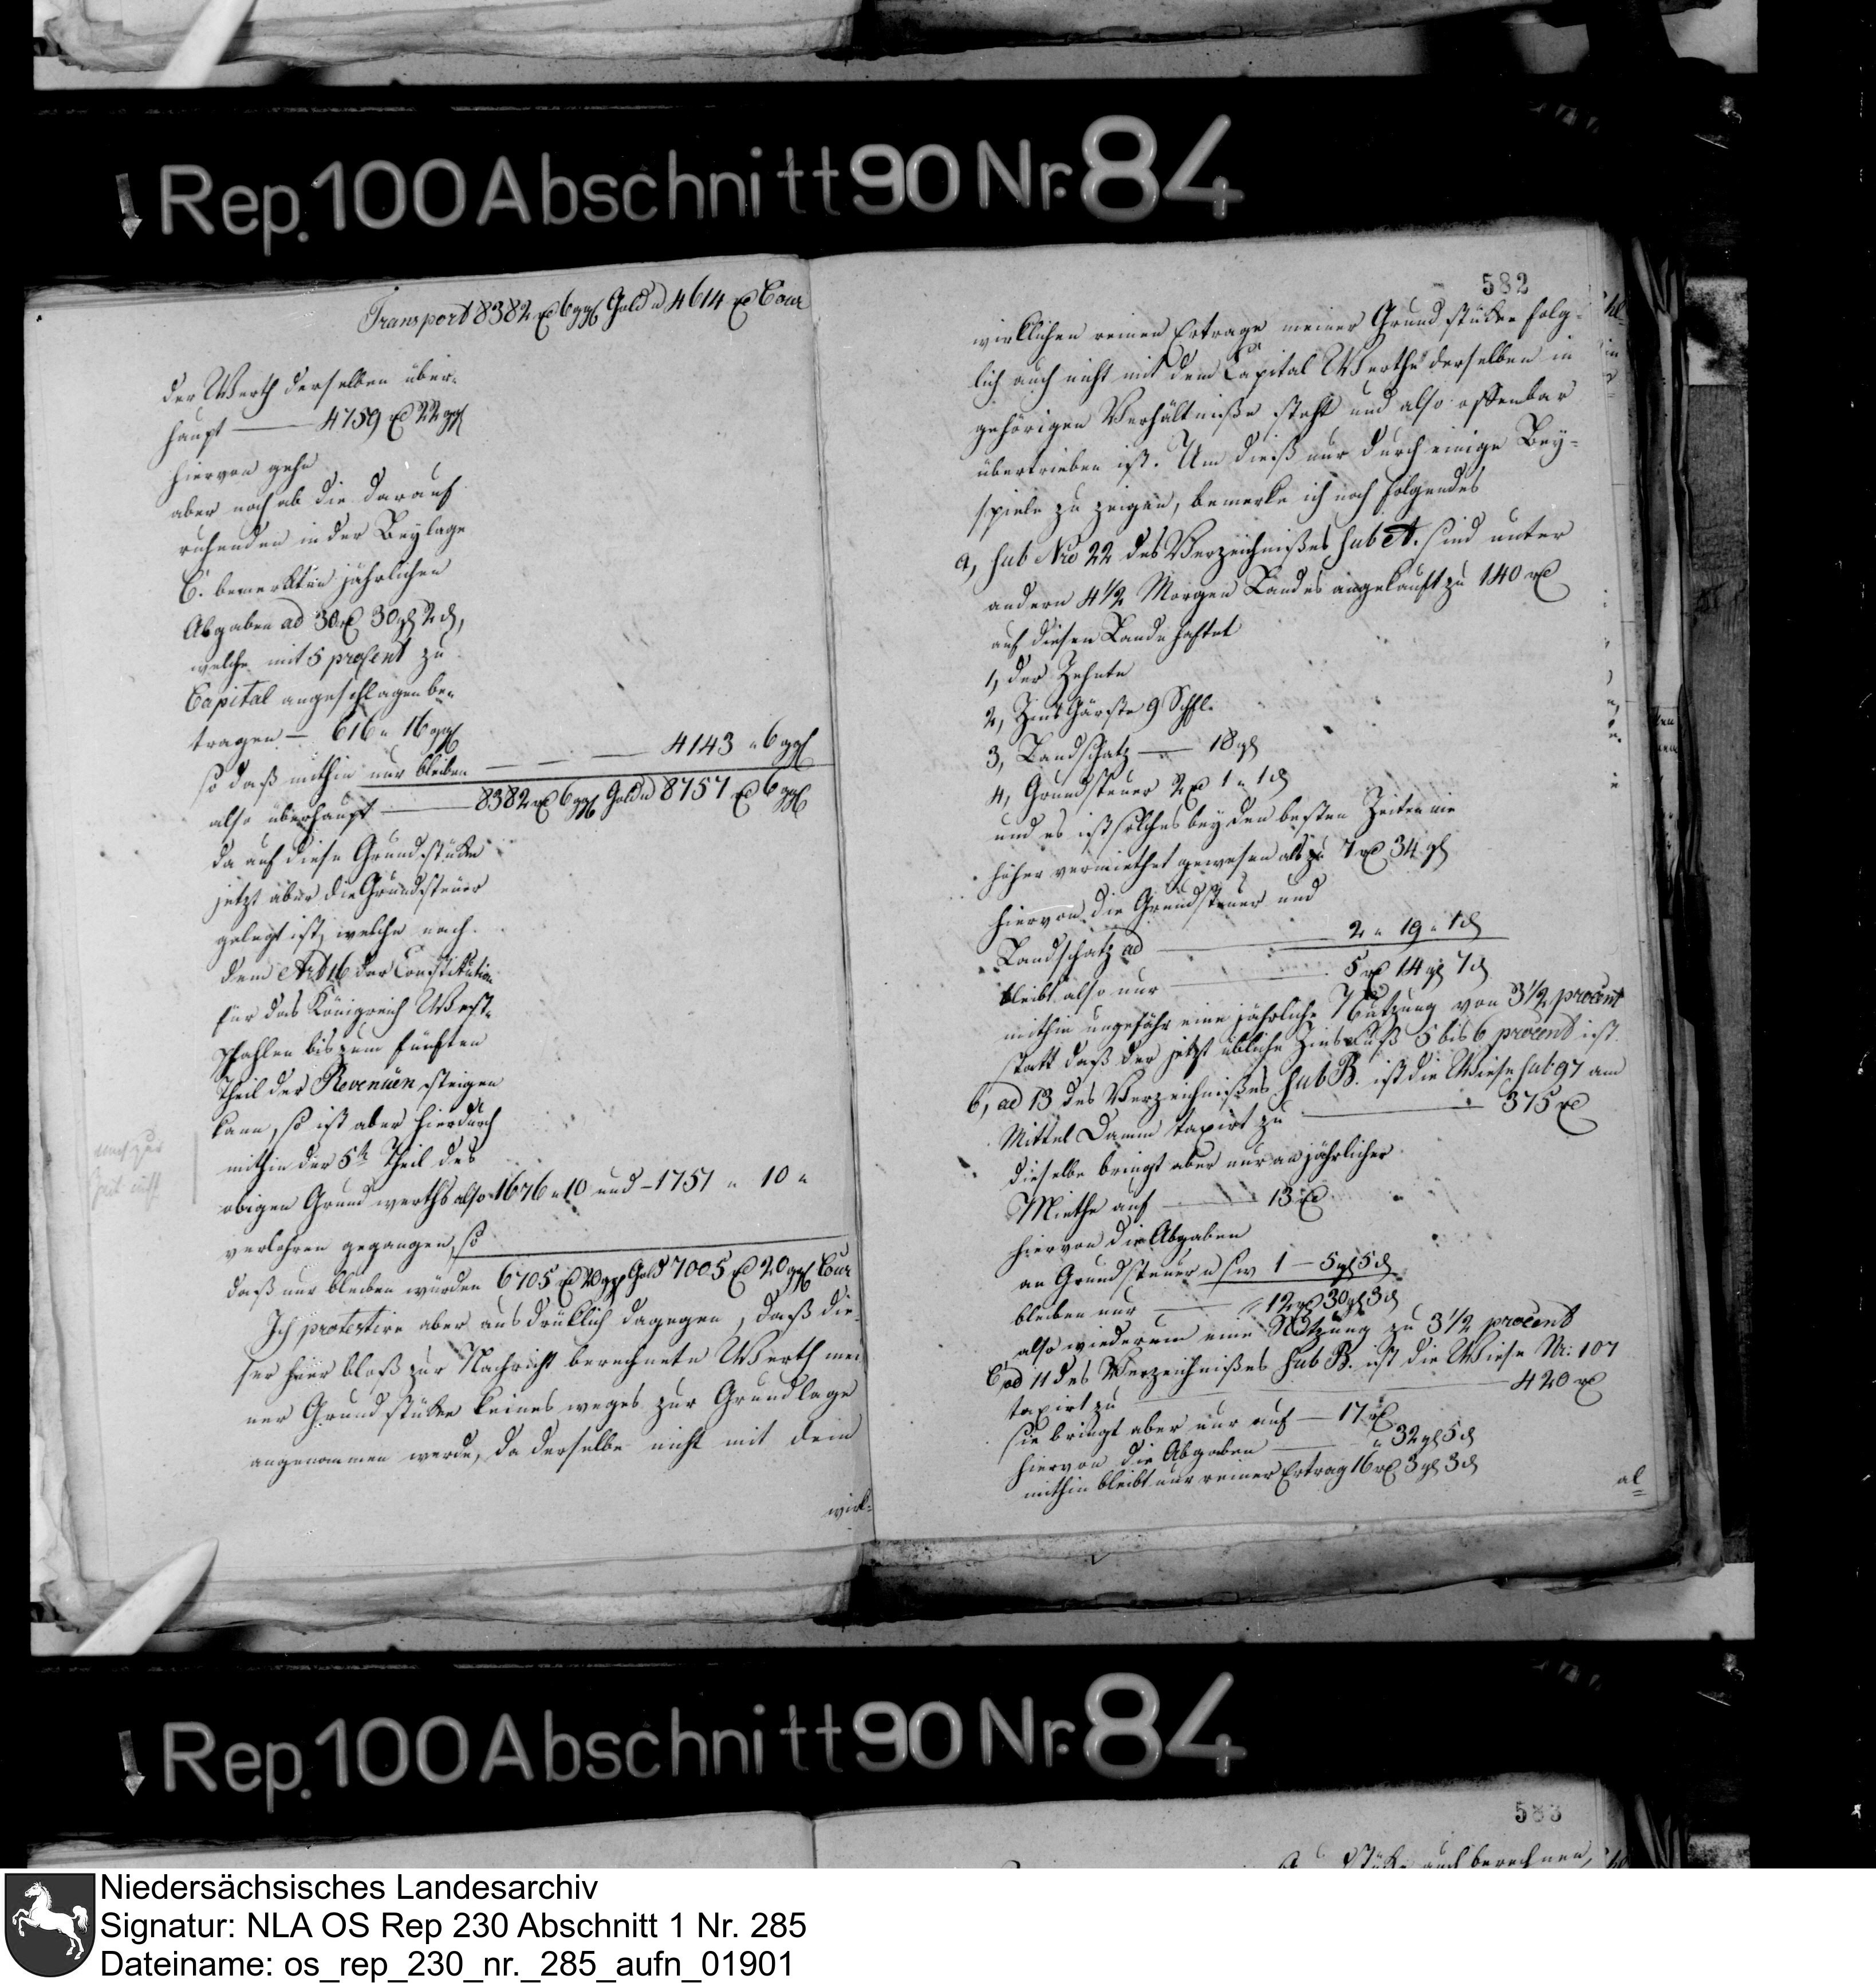 Rep. 100 Abschnitt 90 Nr. 84
Transport 8382 rt 6 ggl Gold u 4614 rt Cour
der Werth derselben über-
haupt — 4759 rt 22 ggl
hiervon gehn
aber noch ab die darauf
ruhenden in der Beylage
C. bemerkten jährlichen
Abgaben ad 30 rt 30 gl 2 d,
welche mit 5 procent zu
Capital angeschlagen be-
tragen — 616 " 16 ggl
so daß mithin nur bleiben — — — 4143 " 6 ggl
also überhaupt — 8382 rt 6 ggl Gold u 8757 rt 6 ggl
da auf diese Grundstücke
jetzt aber die Grundsteuer
gelegt ist, welche nach
dem Art 16 der Constitution
für das Königreich West-
phahlen bis zum fünften
Theil der Revenüen steigen
kann, so ist aber hierdurch
mithin der 5te Theil des
obigen Grundwerths also 1676 " 10 und – 1751 " 10 "
verlohren gegangen, so
daß nur bleiben würden 6705 rt 20 ggl Gold 7005 rt 20 ggl Cour
Ich protestire aber ausdrüklich dagegen, daß die-
ser hier bloß zur Nachricht berechnete Werth mei
ner Grundstücke keinesweges zur Grundlage
angenommen werde, da derselbe nicht mit dem
wirk-
582
wirklichen reinen Ertrage meiner Grundstücke folg-
lich auch nicht mit dem Capital Werthe derselben in
gehörigen Verhältniße steht und also offenbar
übertrieben ist. Um dieß nur durch einige Bey-
spiele zu zeigen, bemerke ich noch folgendes
a, sub Nro 22 des Verzeichnißes sub A. sind unter
andern 4 1/2 Morgen Landes angekauft zu 140 rt
auf diesen Lande haftet
1, der Zehnte
2, Zins Gärste 9 Schfl.
3, Landschatz — 18 gl
4, Grundsteuer 2 rt 1 " 1 d
und es ist solches bey den besten Zeiten nie
höher vermiethet gewesen als zu 7 rt 34 gl
hiervon die Grundsteuer und
Landschatz ad — 2 " 19 " 1 d
bleibt also nur — 5 rt 14 gl 7 d
mithin ungefähr eine jährliche Nutzung von 3 1/2 procent
statt daß der jetzt übliche Zinsfuß 5 bis 6 procent ist.
b, ad 13 des Verzeichnißes sub B. ist die Wiese sub 97 am
Mittel Damm taxirt zu — 375 rt
dieselbe bringt aber nur an jährlicher
Miethe auf — 13 rt
hiervon die Abgaben
an Grundsteuer u s w 1 — 5 gl 5 d
bleiben nur — 12 rt 30 gl 3 d
also wiederum eine Nutzung zu 3 1/2 procent
C, ad 11 des Verzeichnißes sub B. ist die Wiese Nr: 107
taxirt zu — 420 rt
sie bringt aber nur auf — 17 rt
hiervon die Abgaben — " 32 gl 5 d
mithin bleibt nur reiner Ertrag 16 rt 3 gl 3 d
al
Rep. 100 Abschnitt 90 Nr. 84
583
auch berechnen,
Niedersächsisches Landesarchiv
Signatur: NLA OS Rep 230 Abschnitt 1 Nr. 285
Dateiname: os_rep_230_nr._285_aufn_01901